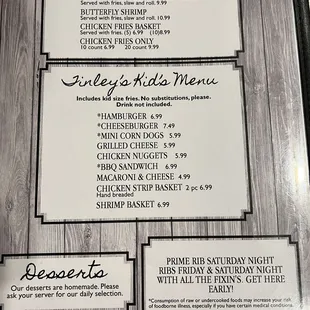 Served with fries, slaw and roll. 9.99
BUTTERFLY SHRIMP
Served with fries, slaw and roll. 10.99
CHICKEN FRIES BASKET
Served with fries. (5) 6.99 (10)8.99
CHICKEN FRIES ONLY
10 count 6.99 20 count 9.99
Finley's Kid's Menu
Includes kid size fries. No substitutions, please.
Drink not included.
*HAMBURGER 6.99
*CHEESEBURGER 7.49
*MINI CORN DOGS 5.99
GRILLED CHEESE 5.99
CHICKEN NUGGETS 5.99
*BBQ SANDWICH 6.99
MACARONI & CHEESE 4.99
CHICKEN STRIP BASKET 2 pc 6.99
Hand breaded
SHRIMP BASKET 6.99
Desserts
Our desserts are homemade. Please
ask your server for our daily selection.
PRIME RIB SATURDAY NIGHT
RIBS FRIDAY & SATURDAY NIGHT
WITH ALL THE FIXIN'S. GET HERE
EARLY!
*Consumption of raw or undercooked foods may increase your risk
of foodborne illness, especially if you have certain medical conditions.